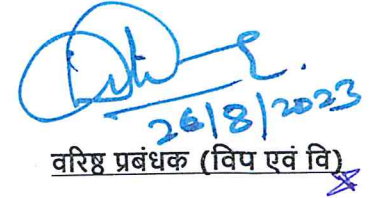 26/8/2023
वरिष्ठ प्रबंधक (विप एवं वि)